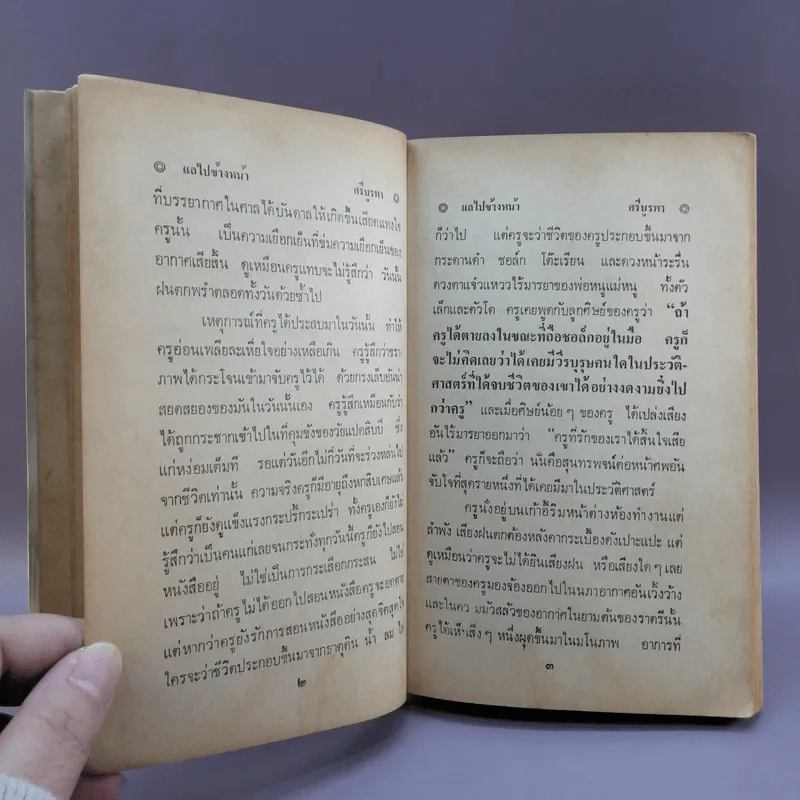 แลไปข้างหน้า
ศรีบูรพา
ที่บรรยากาศในศาลได้บันดาลให้เกิดขึ้นเสียดแทงใจ
ครูนั้น เป็นความเยือกเย็นที่ข่มความเยือกเย็นของ
อากาศเสียสิ้น ดูเหมือนครูแทบจะไม่รู้สึกว่า วันนั้น
ฝนตกพรำตลอดทั้งวันด้วยซ้ำไป
เหตุการณ์ที่ครูได้ประสบมาในวันนั้น ทำให้
ครูอ่อนเพลียละเหี่ยใจอย่างเหลือเกิน ครูรู้สึกว่าชรา-
ภาพได้กระโจนเข้ามาจับครูไว้ได้ ด้วยกรงเล็บอันน่า
สยดสยองของมันในวันนั้นเอง ครูรู้สึกเหมือนกับว่า
ได้ถูกกระชากเข้าไปในที่คุมขังของวัยแปดสิบปี ซึ่ง
แก่หง่อมเต็มที รอแต่วันอีกไม่กี่วันที่จะร่วงหล่นไป
จากชีวิตเท่านั้น ความจริงครูก็มีอายุถึงหกสิบเศษแล้ว
แต่ครูก็ยังดูแข็งแรงกระปรี้กระเปร่า ทั้งครูเองก็ยังไม่
รู้สึกว่าเป็นคนแก่เลยจนกระทั่งทุกวันนี้ครูก็ยังไปสอน
หนังสืออยู่ ไม่ใช่เป็นการกระเสือกกระสน ไม่ใช่
เพราะว่าถ้าครูไม่ได้ออกไปสอนหนังสือครูจะอดตาย
แต่หากว่าครูยังรักการสอนหนังสืออย่างสุดจิตสุดใจ
ใครจะว่าชีวิตประกอบขึ้นมาจากธาตุดิน น้ำ ลม ไฟ
๒
แลไปข้างหน้า ศรีบูรพา
ก็ว่าไป แต่ครูจะว่าชีวิตของครูประกอบขึ้นมาจาก
กระดานดำ ชอล์ก โต๊ะเรียน และดวงหน้าระรื่น
ดวงตาแจ๋วแหววไร้มารยาของพ่อหนูแม่หนู ทั้งตัว
เล็กและตัวโต ครูเคยพูดกับลูกศิษย์ของครูว่า “ถ้า
ครูได้ตายลงในขณะที่ถือชอล์กอยู่ในมือ ครูก็
จะไม่คิดเลยว่าได้เคยมีวีรบุรุษคนใดในประวัติ-
ศาสตร์ที่ได้จบชีวิตของเขาได้อย่างงดงามยิ่งไป
กว่าครู” และเมื่อศิษย์น้อยๆ ของครู ได้เปล่งเสียง
อันไร้มารยาออกมาว่า “ครูที่รักของเราได้สิ้นใจเสีย
แล้ว” ครูก็จะถือว่า นั่นคือสุนทรพจน์ต่อหน้าศพอัน
จับใจที่สุดรายหนึ่งที่ได้เคยมีมาในประวัติศาสตร์
ครูนั่งอยู่บนเก้าอี้ริมหน้าต่างห้องทำงานแต่
ลำพัง เสียงฝนตกต้องหลังคากระเบื้องดังเปาะแปะ แต่
ดูเหมือนว่าครูจะไม่ได้ยินเสียงฝน หรือเสียงใดๆ เลย
สายตาของครูมองจ้องออกไปในนภาอากาศอันเวิ้งว้าง
และในคว มมัวสลัวของอากาศในยามต้นของราตรีนั้น
ครูได้เห็นสิ่งๆ หนึ่งผุดขึ้นมาในมโนภาพ อาการที่
๓